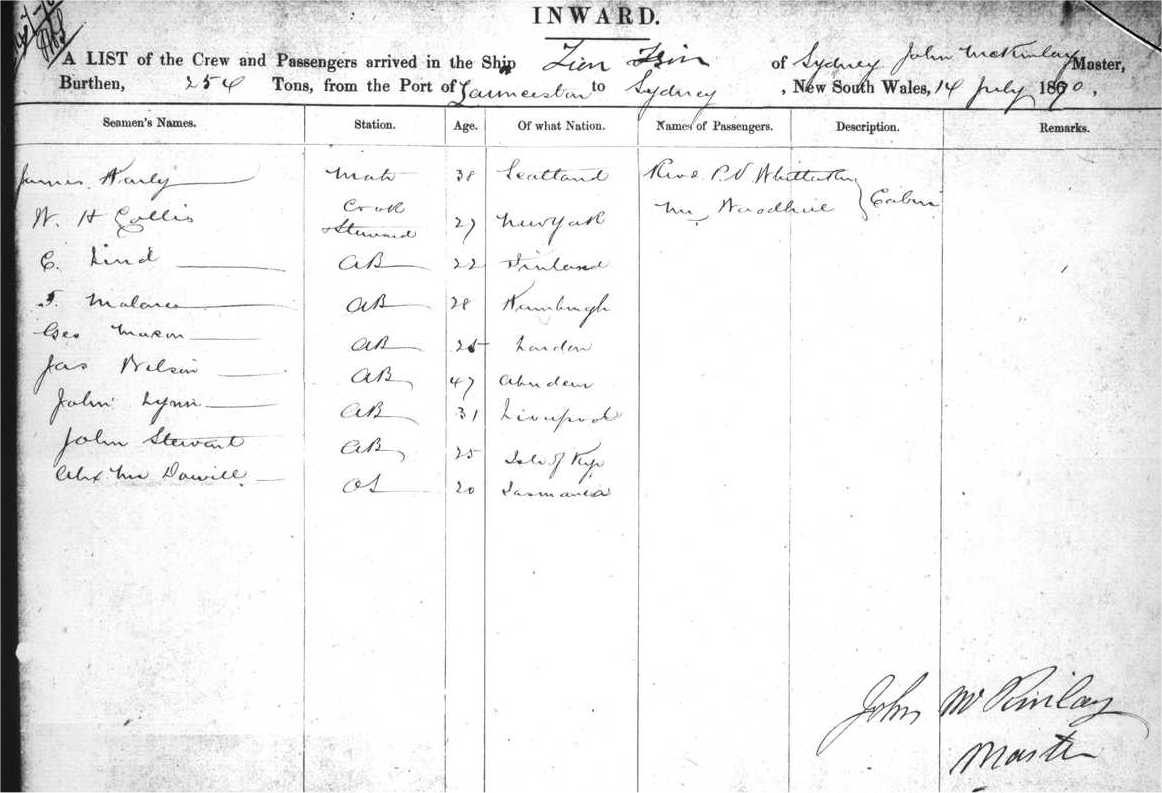 INWARD.
A LIST of the Crew and Passengers arrived in the Ship Tien Tsin of Sydney John McKinlay Master,
Burthen, 254 Tons, from the Port of Launceston to Sydney, New South Wales, 14 July 1870,
Seamen's Names. Station. Age. Of what Nation. Names of Passengers. Description. Remarks.
James Mate 38 Scotland Revd P.V.
W. H Collis Cook & Steward 27 New York Mr Woodhill Cabin
C. Lind AB 22 Finland
AB 28
Geo Mason AB 25 London
Jas Wilson AB 47 Aberdeen
John Lynn AB 31 Liverpool
John Stewart AB 25 Isle of
Alex Mc Dowell OS 20 Tasmania
John McKinlay
Master